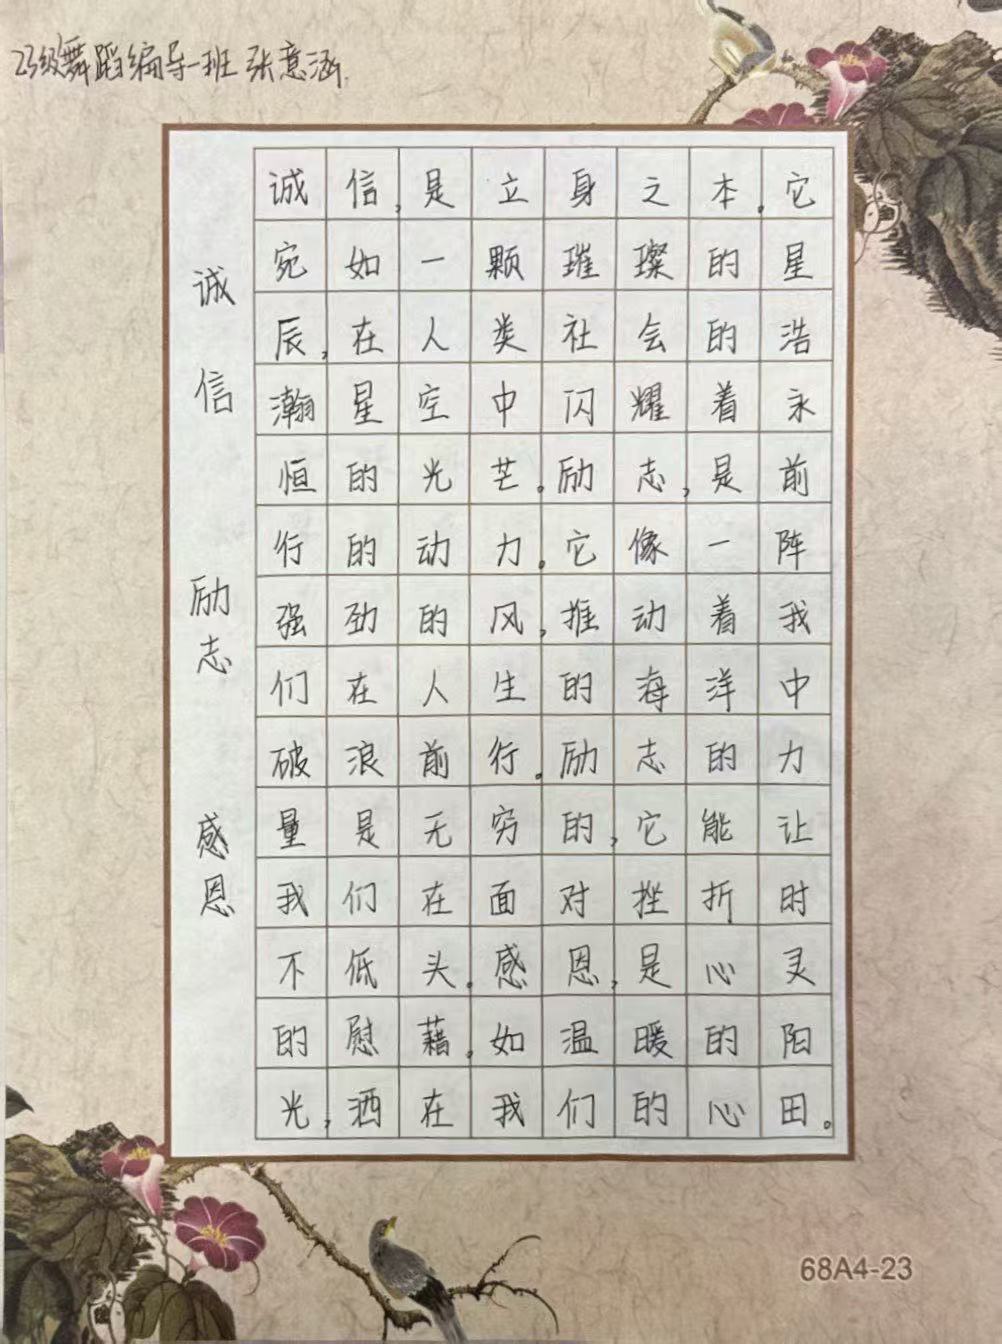 23级舞蹈编导一班 张意涵.
诚信 励志 感恩
诚信,是立身之本,它
宛如一颗璀璨的星
辰,在人类社会的浩
瀚星空中闪耀着永
恒的光芒。励志,是前
行的动力。它像一阵
强劲的风,推动着我
们在人生的海洋中
破浪前行。励志的力
量是无穷的,它能让
我们在面对挫折时
不低头。感恩,是心灵
的慰藉。如温暖的阳
光,洒在我们的心田。
68A4-23